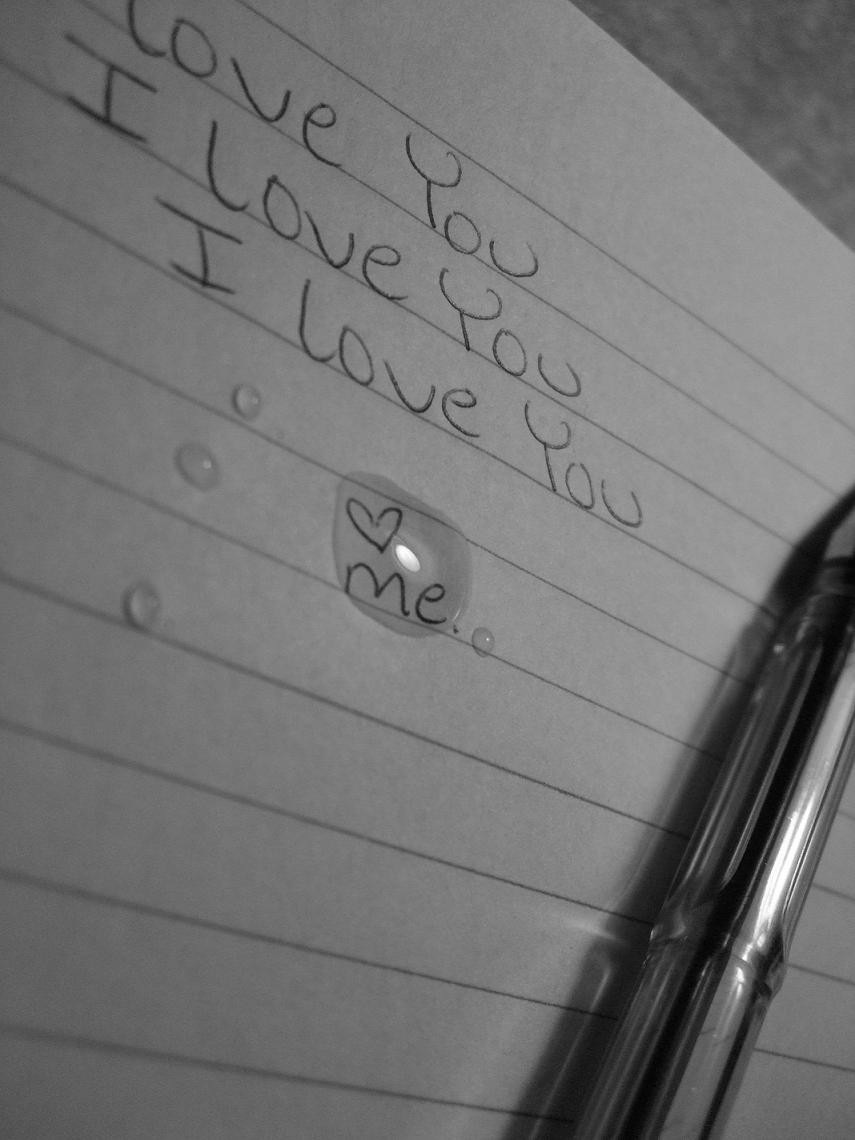 love You
I love You
I love You
♡
me.